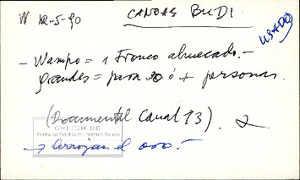 W 12-5-90 CANOAS BUDI
USADO
- Wampo = 1 Tronco ahuecado.-
grandes = para 20 ó + personas.
(Documental Canal 13).
→ arrojan el